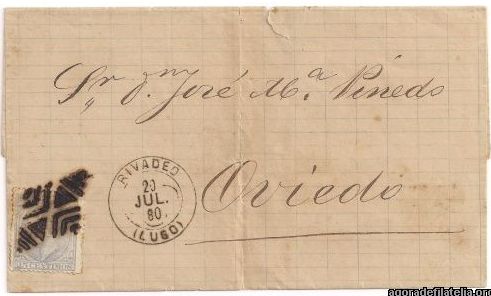 Sr. Dn. José Ma. Pinedo
RIVADEO
20
JUL.
80
(LUGO)
Oviedo
agoradefilatelia.org